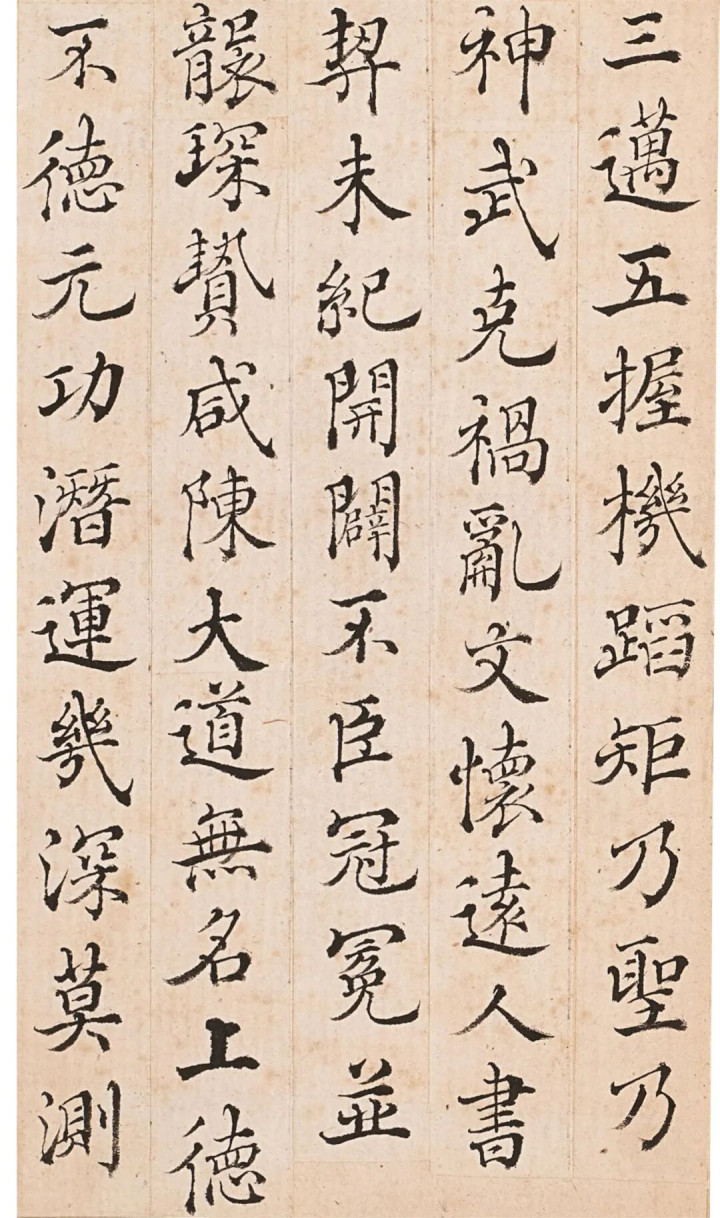 三邁五握機蹈矩乃聖乃
神武克禍亂文懷遠人書
契未紀開闢不臣冠冕並
襲琛贄咸陳大道無名上德
不德元功潛運幾深莫測